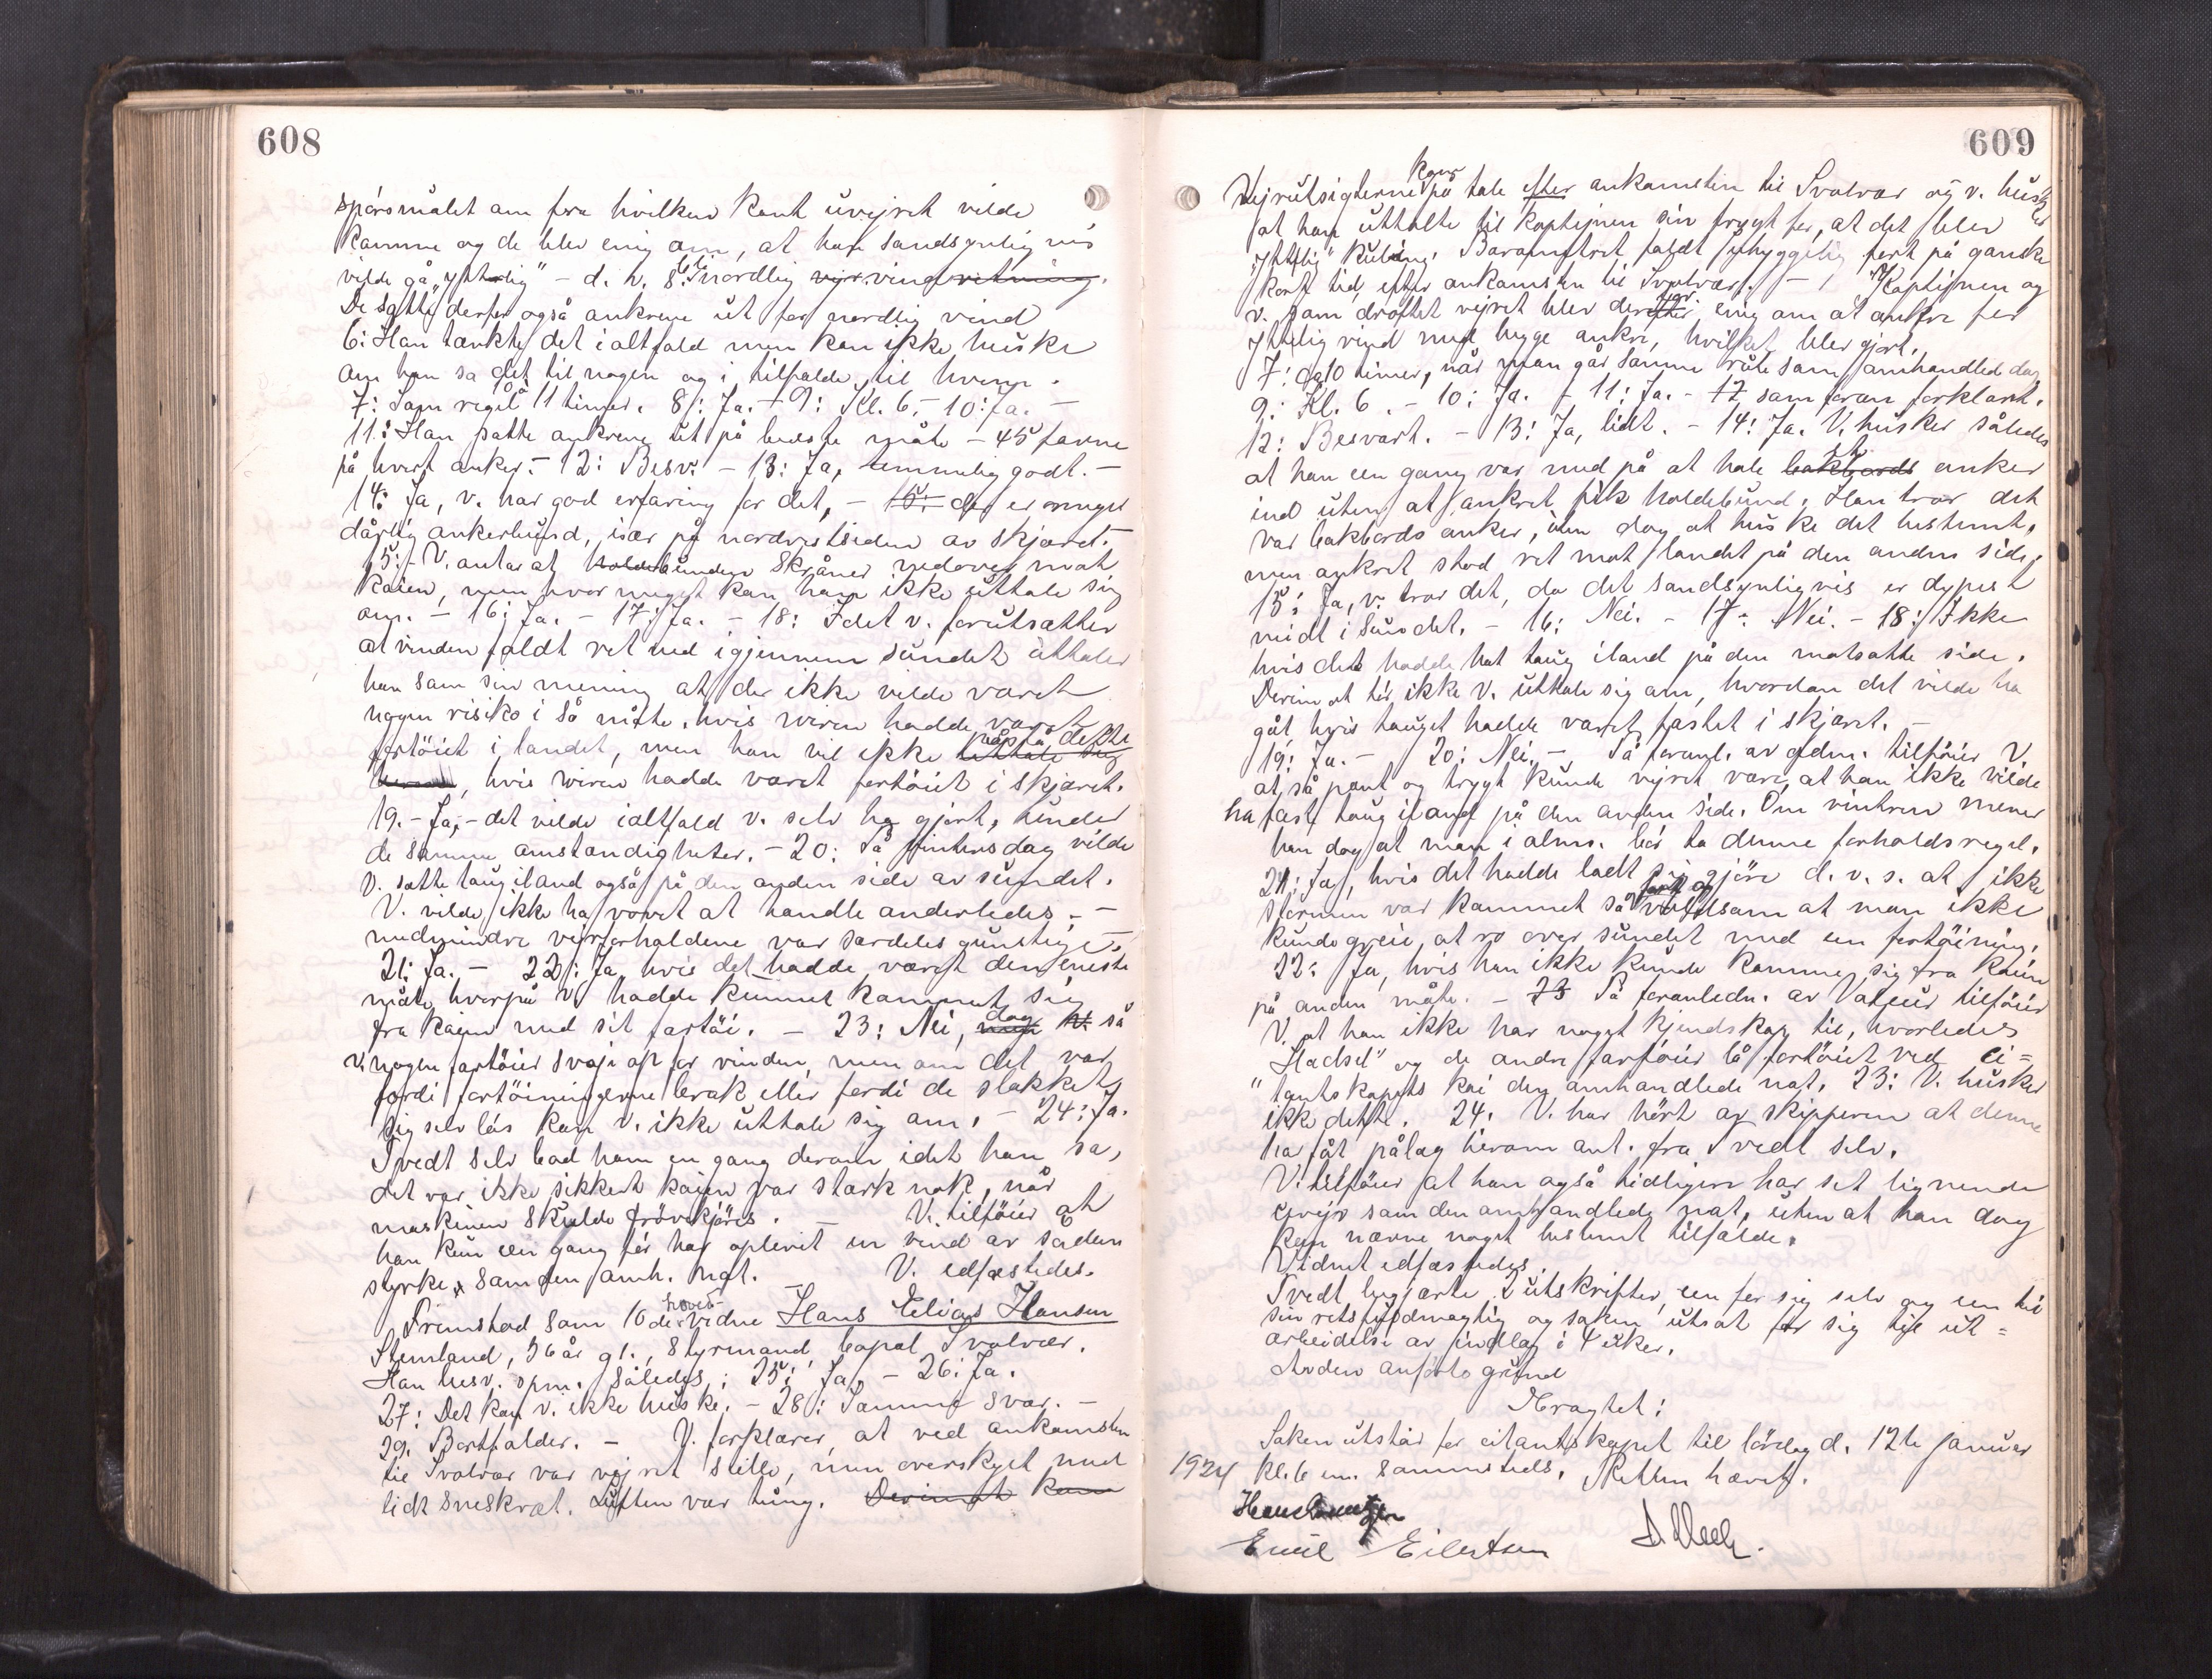 608
spörsmålet om fra hvilken kant uveiret vilde
komme og de blev enig om, at han sandsynligvis
vilde gå "ythælig" - d. v. s. bli nordlig vejr. vind retning.
De satte derfor også ankrene ut for nordlig vind
6: Han tænkte det ialtfald men kan ikke huske
om han sa det til nogen og i tilfælde til hvem.
7: Som regel 10 à 11 timer. 8: Ja. - 9: Kl. 6. - 10: Ja. -
11: Han satte ankrene ut på bedste måte - 45 favne
på hvert anker. - 12: Besv. - 13: Ja, temmelig godt. -
14: Ja, v. har god erfaring for det, - 15: der er meget
dårlig ankerbund, især på nordvestsiden av skjæret. -
15: - V. antar at holdebunden skråner nedover mot
kaien, men hvor meget kan han ikke uttale sig
om. - 16: Ja. - 17: Ja. - 18: Idet v. forutsætter
at vinden faldt ret ned igjennem sundet uttaler
han som sin mening at der ikke vilde været
nogen risiko i så måte, hvis wiren hadde været
fortöiet i landet, men han vil ikke påstå dette uttale sig
, hvis wiren hadde været fortöiet i skjæret.
19. - Ja, - det vilde ialtfald v. selv ha gjort, under
de samme omstændigheter. - 20: På vintersdag vilde
V. sætte taug iland også på den anden side av sundet.
V. vilde ikke ha vovet at handle anderledes. -
medmindre veirforholdene var særdeles gunstige. -
21: Ja. - 22: Ja, hvis det hadde været den eneste
måte hvorpå v. hadde kunnet kommet sig
fra kaien med sit fartöi. - 23: Nei, dog så
v. nogen fartöier svaje op for vinden, men om det var
fordi fortöiningerne brak eller fordi de slakket
sig selv lös kan v. ikke uttale sig om. - 24: Ja.
Tvedt selv bad ham en gang derom idet han sa,
det var ikke sikkert kaien var stærk nok, når
maskinen skulde prövekjöres. - V. tilföier at
han kun een gang för har oplevet en vind av sadan
styrke, som den omh. nat. - V. edfæstedes.
Fremstod som 10de hoved-vidne Hans Elias Hansen
Stemland, 36 år gl., Styrmand, bopæl Svolvær.
Han besv. spm. således: 25: Ja. - 26: Ja.
27: Det kan v. ikke huske. - 28: Samme svar. -
29. Bortfalder. - V. forklarer, at ved ankomsten
til Svolvær var vejret stille, men overskyet med
lidt sneskræt. Luften var tung. Derimot kom
609
Vejrutsigterne kom på tale efter ankomsten til Svolvær og v. husker
at han uttalte til kaptejnen sin frygt for, at det blev
"ythælig" kuling. Barometret faldt uhyggelig fort på ganske
kort tid efter ankomsten til Svolvær. - Kaptejnen og
v. som dröftet vejret blev derfor enig om at ankre for
ythælig vind med begge ankre, hvilket blev gjort.
7: ca 10 timer, når man går samme rute som omhandlede dag
9: Kl. 6. - 10: Ja. - 11: Ja. - 12 som foran forklart.
12: Besvart. - 13: Ja, lidt. - 14: Ja. V. husker således
at han een gang var med på at hale bakbords anker
ind uten at ankret fik holdebund. Han tror det
var bakbords anker, uten dog at huske det bestemt,
men ankret stod ret mot landet på den anden side.
15: Ja, v. tror det, da det sandsynligvis er dypest
midt i sundet. - 16: Nei. - 17: Nei. - 18: Ikke
hvis det hadde hat taug iland på den motsatte side.
Derimot tör ikke V. uttale sig om, hvordan det vilde ha
gåt hvis tauget hadde været fæstet i skjæret. -
19: Ja. - 20: Nei. - På foranl. av adm. tilföier V.
at så pent og trygt kunde vejret være, at han ikke vilde
ha fæst taug iland på den anden side. Om vinteren mener
han dog at man i alm. bör ta denne forholdsregel.
21: Ja, hvis det hadde ladt sig gjöre d. v. s. at ikke
stormen var kommet så fort og voldsom at man ikke
kunde greie at ro over sundet med en fortöining.
22: Ja, hvis han ikke kunde komme sig fra kaien
på anden måte. - 23 På foranledn. av Vatjeur tilföier
V. at han ikke har noget kjendskap til, hvorledes
"Hadsel" og de andre fartöier lå fortöiet ved ci=
"tantskapets kai den omhandlede nat. 23: V. husker
ikke dette. 24. V. har hört av skipperen at denne
har fåt pålæg herom ant. fra Tvedt selv.
V. tilföier at han også tidligere har set lignende
uvejr som den omhandlede nat, uten at han dog
kan nævne noget bestemt tilfælde.
Vidnet edfæstedes.
Tvedt begjærte 2 utskrifter, een for sig selv og een til
sin retsfuldmægtig og saken utsat for sig til ut=
arbeidelse av indlæg i 4 uker.
Av den anförte grund
Eragtet:
Saken utstår for citantskapet til lördag d. 12te januar
1924 kl. 6 em. sammesteds. Retten hævet.
Emil Eilertsen